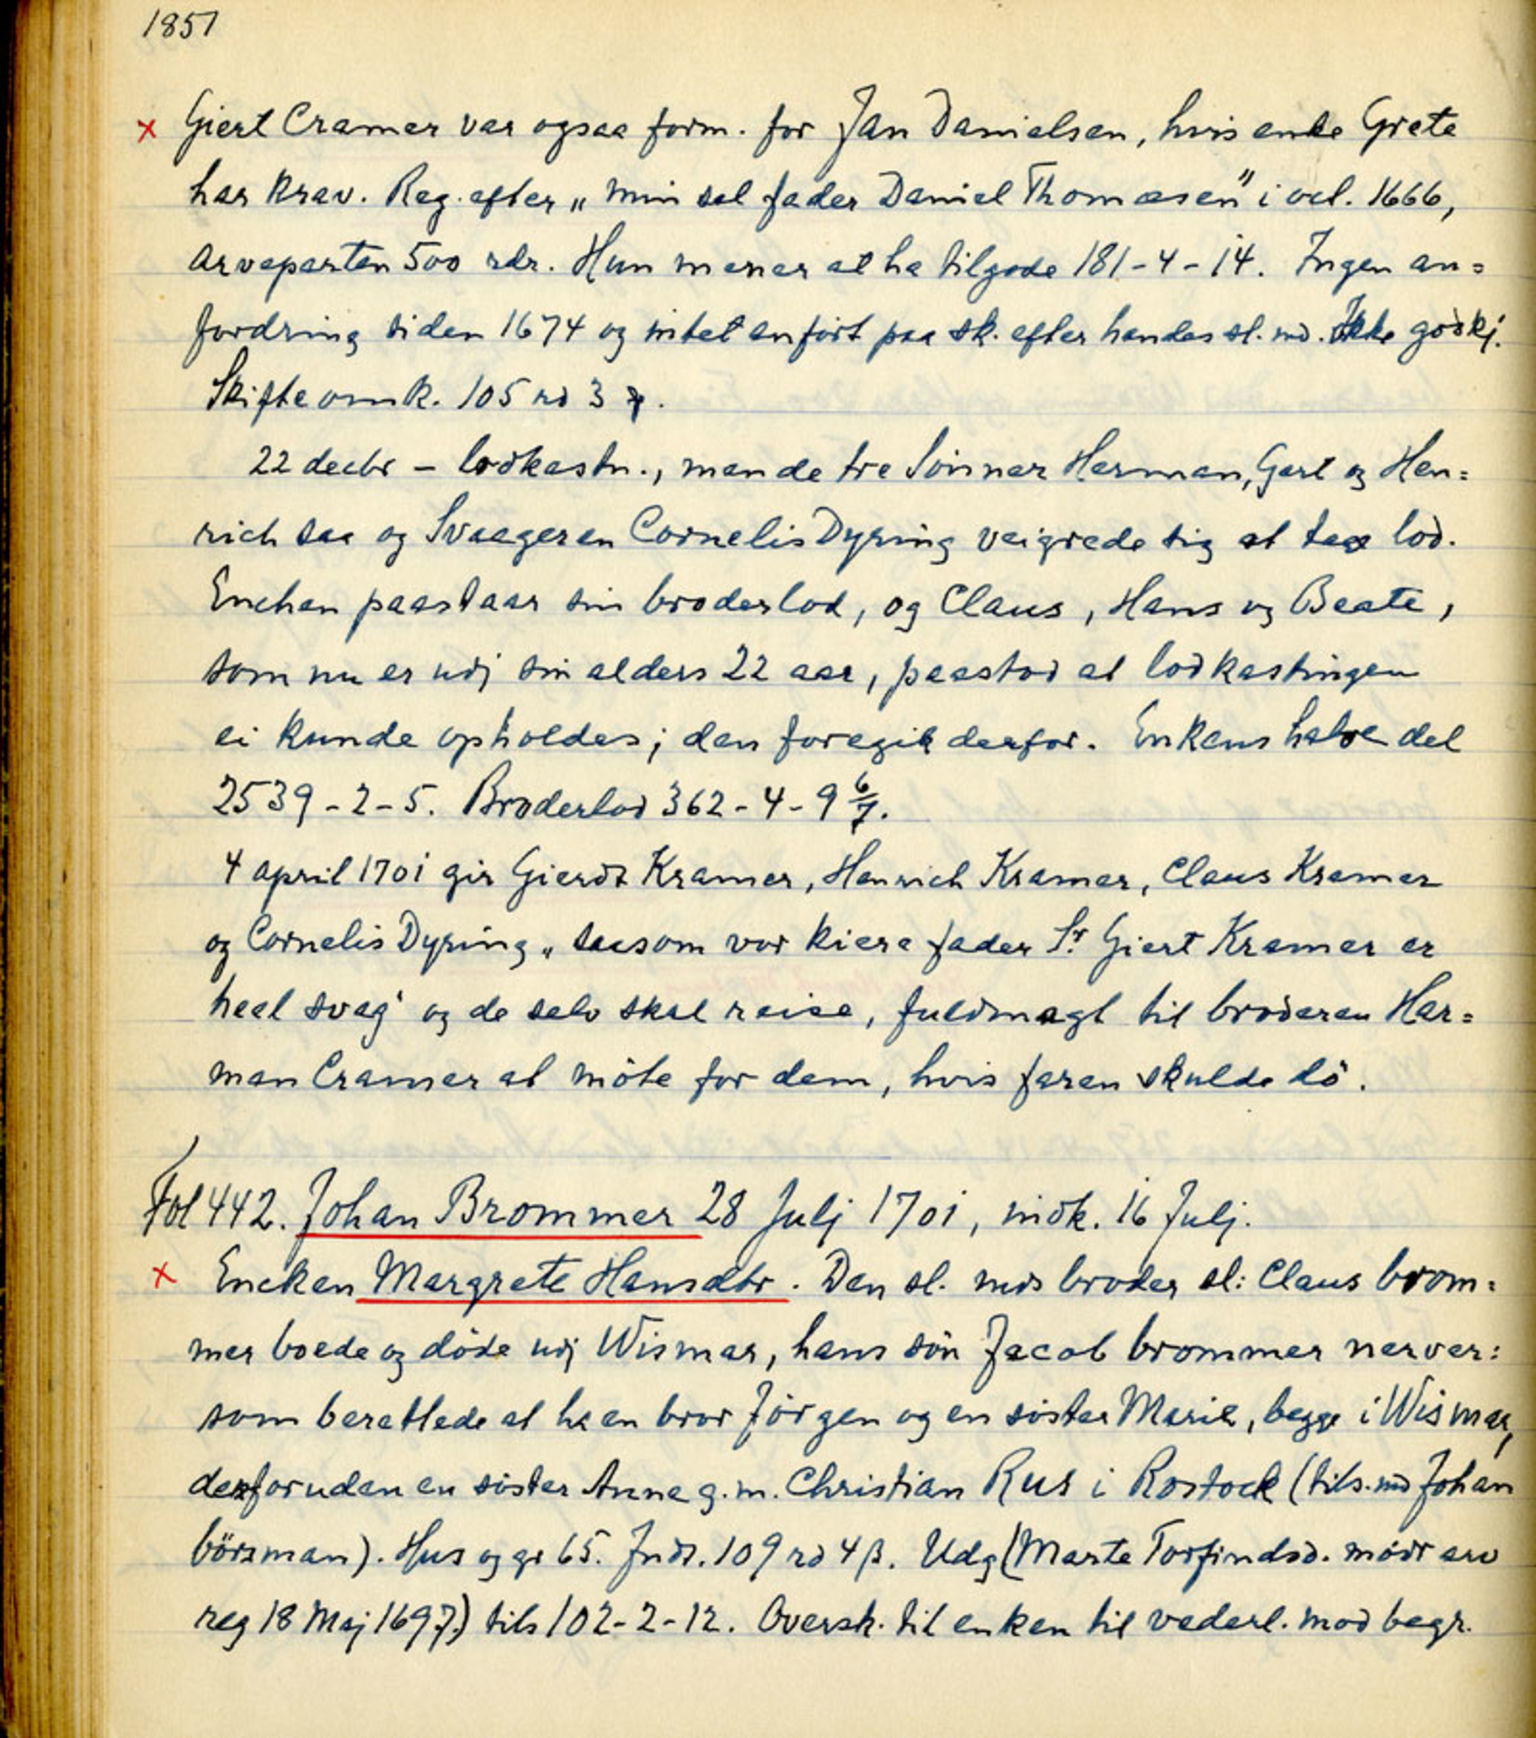 1851
× Giert Cramer var ogsaa form. for Jan Danielsen, hvis enke Grete
har krav. Reg. efter „min sal fader Daniel Thomæsen" i oct. 1666,
arveparten 500 rdr. Hun mener at ha tilgode 181-4-14. Ingen an=
fordring siden 1674 og intet anfört paa sk. efter hendes sl. md. Ikke godkj.
Skifteomk. 105 rd 3
22 decbr – lodkastn., men de tre Sönner Herman, Gert og Hen=
rich saa og Svaageren Cornelis Dyring veigrede sig at tage lod.
Enchen paastaar sin broderlod, og Claus, Hans og Beate,
som nu er udj sin alders 22 aar, paastod at lodkastingen
ei kunde opholdes; den foregik derfor. Enkens halve del
2539-2-5. Broderlod 362-4-9 6/7.
4 april 1701 gir Gierdt Kramer, Henrich Kramer, Claus Kramer
og Cornelis Dyring „saasom vor kiere fader Sr. Giert Kramer er
heel svag" og de selv skal reise, fuldmagt til broderen Har=
man Cramer at möte for dem, hvis faren skulde dö.
Fol 442. Johan Brommer 28 Julj 1701, indk. 16 Julj.
× Encken Margrete Hansdtr. Den sl. mds broder sl: Claus brom=
mer boede og döde udj Wismar, hans sön Jacob brommer nerver:
som berettede at ha en bror Jörgen og en söster Marie, begge i Wismar,
desforuden en söster Anna g.m. Christian Rus i Rostock (tils. md Johan
börsman). Hus og gr 65. Indt. 109 rd 4 β. Udg (Marte Torfindsd. mödr arv
reg 18 Maj 1697) tils 102-2-12. Oversk. til enken til vederl. mod begr.